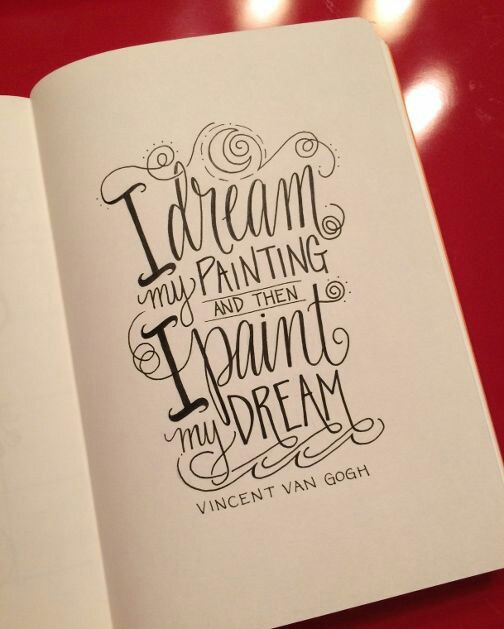 I dream
my PAINTING
AND THEN
I paint
my DREAM
VINCENT VAN GOGH